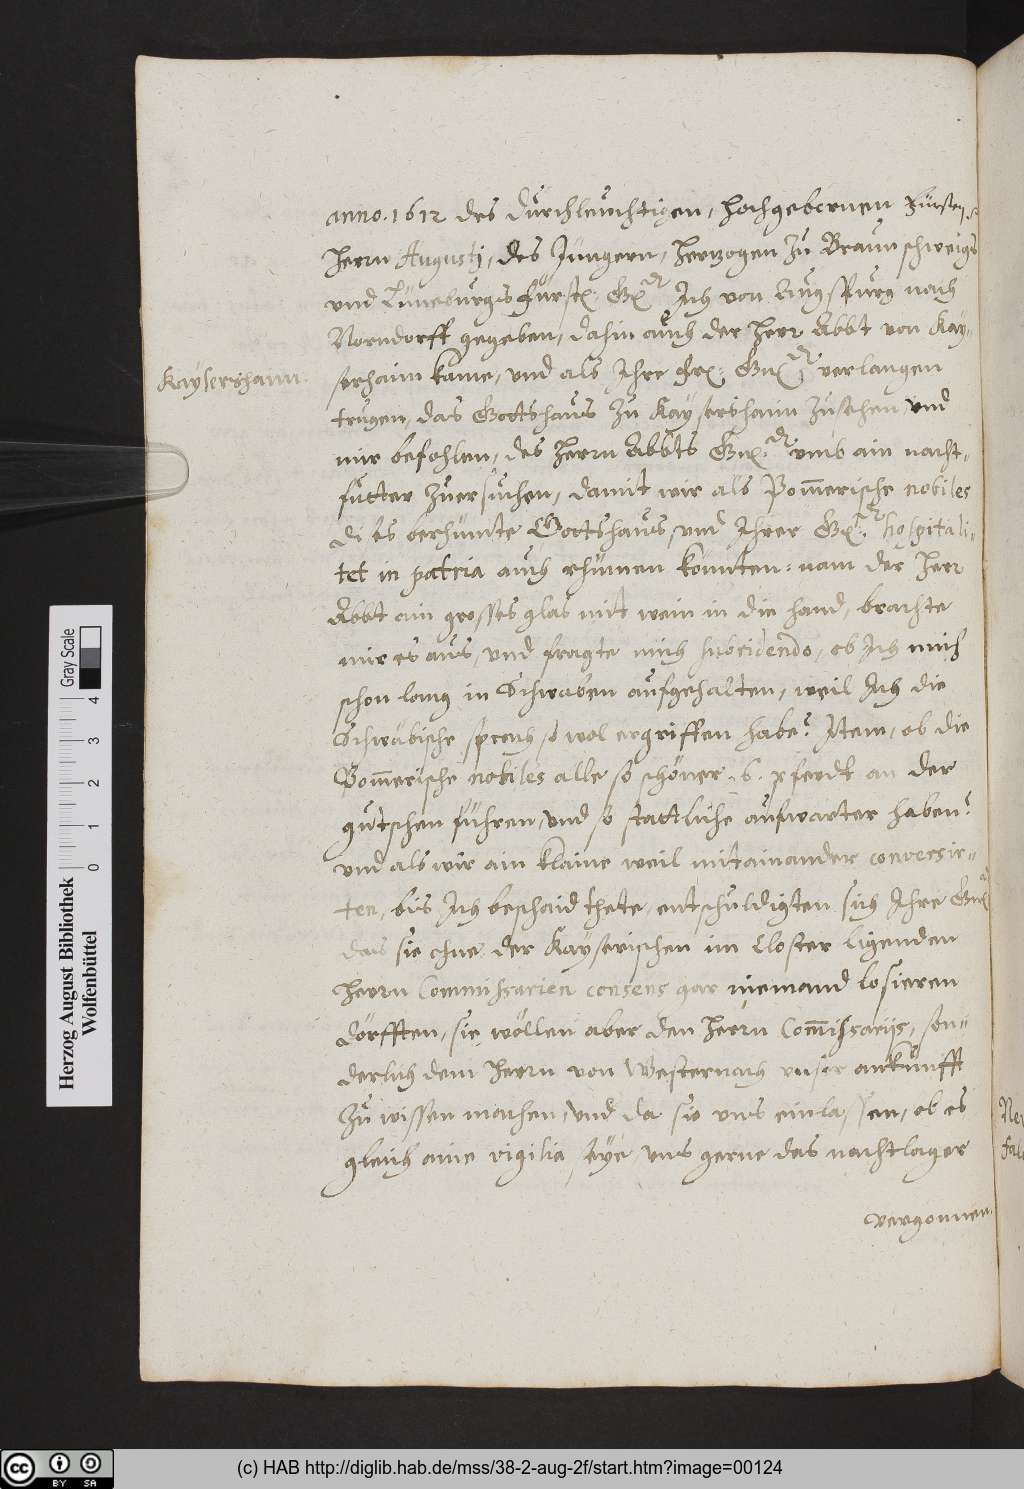 anno. 1612 des durchleuchtigen, hochgebornen Fürsten
Herrn Augustj, des Jüngern, Hertzogen zu Braunschweigs
vnd Lüneburgs fürstl: Gn: Ich von Augspurg nach
Norndorff gegeben, dahin auch der Herr Abbt von Kay-
Kaysershaim.
serhaim kame, vnd als Ihre frl: Gn: verlangen
trugen, das Gottshaus zu Kaysershaim zusehen, vnd
mir befohlen, des Herrn Abbts Gn: vmb ain nacht-
futter zuersuchen, damit wir als Pom̄erische nobiles
di es berhümte Gottshaus, vnd Ihrer Gn: hospitali-
tet in patria auch rhümen konnten: nam der Herr
Abbt ain grosses glas mit wein in die hand, brachte
mir es aus, vnd fragte mich subridendo, ob Ich mich
schon lang in Schwaben aufgehalten, weil Ich die
Schwäbische sprach so wol ergriffen habe? Item, ob die
Pom̄erische nobiles alle so schöner .6. pferdt an der
gutschen führen, vnd so stattliche aufwarter haben?
vnd als wir ain klaine weil mitainander conversir-
ten, bis Ich beschaid thete, entschuldigten sich Ihre Gn:
das sie ohne der Kayserischen im Closter ligenden
Herrn Commissarien consens gar niemand losieren
dörfften, sie wöllen aber den Herrn Com̄issarijs, son-
derlich dem Herrn von Westernach vnser ankunfft
zu wissen machen, vnd da sie vns einlassen, ob es
gleich aine vigilia seye, vns gerne das nachtlager
vergonnen.
Herzog August Bibliothek
Wolfenbüttel
Gray Scale
0 1 2 3 4
(c) HAB http://diglib.hab.de/mss/38-2-aug-2f/start.htm?image=00124
cc BY SA